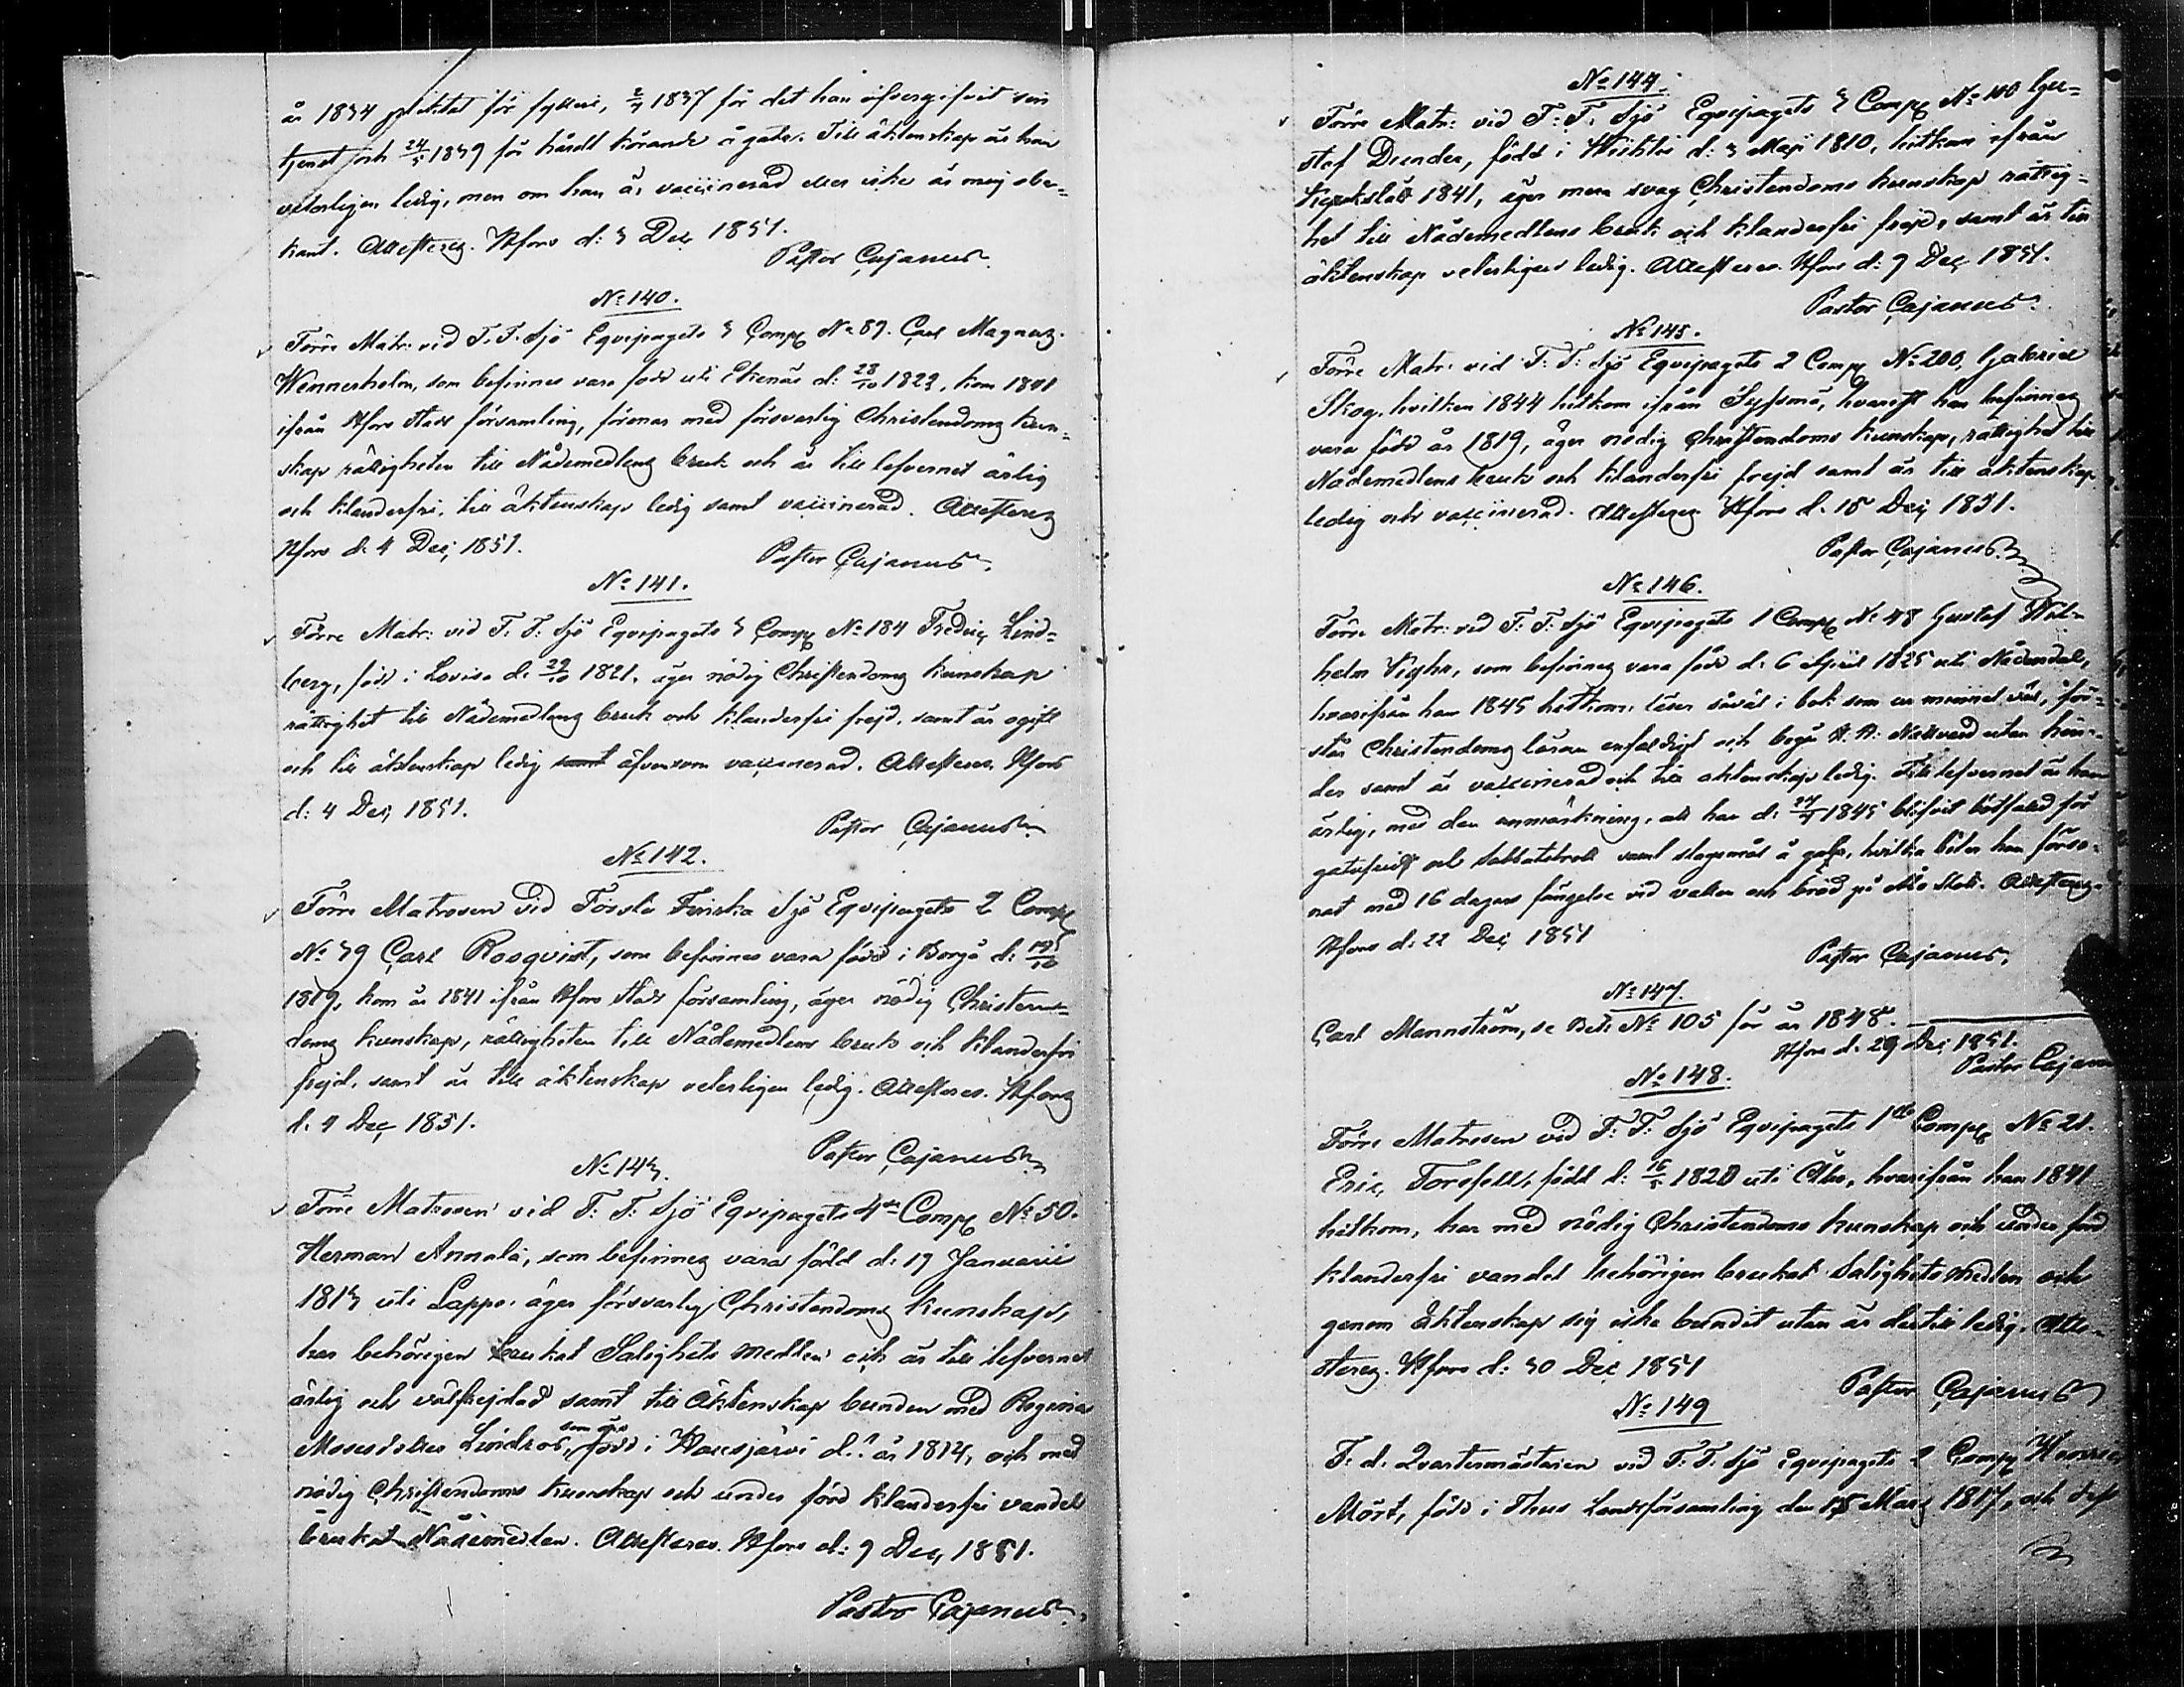 år 1834 pliktat för fylleri, 2/7 1837 för det han öfvergifvit sin
tjenst och 24/5 1839 för hårdt körande å gata. Till äktenskap är han
veterligen ledig, men om han är vaccinerad eller icke är mig obe-
kant. Attesterez. Hfors d: 3 Dec 1851.
Pastor Cajanus.
No 140.
Förre Matr: vid F. F. Sjö Eqvipagets 3 Comp No 89. Carl Magnus
Wennerholm, som befinnes vara född uti Ekenäs d: 28/10 1822, kom 1841
ifrån Hfors Stads församling, förenar med försvarlig Christendoms kun-
skap rättigheten till Nådemedlens bruk och är till lefvernet ärlig
och klanderfri, till äktenskap ledig samt vaccinerad. Attesterez
Hfors d. 4 Dec, 1851.
Pastor Cajanus.
No 141.
Förre Matr: vid F. F. Sjö Eqvipagets 3 Comp No 184 Fredric Lind-
berg, född i Lovisa d. 29/10 1821, äger nödig Christendoms kunskap
rättighet till Nådemedlens bruk och klanderfri frejd, samt är ogift
och till äktenskap ledig samt äfvensom vaccinerad. Attesteres. Hfors
d: 4 Dec, 1851.
Pastor Cajanus
No 142.
Förre Matrosen vid Första Finska Sjö Eqvipagets 2 Comp
No 39 Carl Rosqvist, som befinnes vara född i Borgå d: 19/10
1819, kom år 1841 ifrån Hfors Stads församling, äger nödig Christen-
doms kunskap, rättigheten till Nådemedlens bruk och klanderfri
frejd, samt är till äktenskap veterligen ledig. Attesteres. Hfors
d. 4 Dec, 1851.
Pastor Cajanus
No 143.
Förre Matrosen vid F: F: Sjö Eqvipagets 4de Comp No 50.
Herman Annala, som befinnes vara född d: 19 Januarii
1813 uti Lappo, äger försvarlig Christendoms kunskap,
har behörigen brukat Salighets medlen och är till lefvernet
ärlig och välfrejdad samt till äktenskap bunden med Regina
Mosesdotter Lindros, som är född i d. : år 1814, och med
nödig Christendoms kunskap och under förd klanderfri vandel
brukat Nådemedlen. Attesteres. Hfors d: 9 Dec, 1851.
Pastor Cajanus.
No 144.
Förre Matr: vid F: F: Sjö Eqvipagets 3 Comp No 100 Gu-
staf Dunder, född i Wichtis d: 3 Maji 1810, hitkom ifrån
Kyrkslätt 1841, äger mera svag Christendoms kunskap rättig-
het till Nådemedlens bruk och klanderfri frejd, samt är till
äktenskap veterligen ledig. Attesteres. Hfors d: 9 Dec, 1851.
Pastor Cajanus.
No 145.
Förre Matr: vid F: F: Sjö Eqvipagets 2 Comp No 200, Gabriel
Skog, hvilken 1844 hitkom ifrån Sysmä, hvarest han befinnes
vara född år 1819, äger nödig Christendoms kunskap, rättighet till
Nådemedlens bruk och klanderfri frejd samt är till äktenskap
ledig och vaccinerad. Attesterez Hfors d. 15 Dec, 1851.
Pastor Cajanus.
No 146.
Förre Matr: vid F: F: Sjö Eqvipagets 1 Comp No 48 Gustaf Wil-
helm som befinnes vara född d: 6 April 1825 uti Nådendal,
hvarifrån han 1845 hitkom, läser såväl i bok som ur minnet väl, för-
står Christendoms läran enfaldigt och begår H. H: Nattvard utan hin-
der samt är vaccinerad och till äktenskap ledig. Till lefvernet är han
ärlig, med den anmärkning, att han d: 24/4 1845 blifvit bötfälld för
gatufrids och sabbatsbrott samt slagsmål å gata, hvilka böter han förso-
nat med 16 dagars fängelse vid vatten och bröd på Åbo Slott. Attesterez.
Hfors d: 22 Dec, 1851
Pastor Cajanus.
No 147.
Carl Mannström, se Bet: No 105 för år 1848.
Hfors d. 29 Dec, 1851.
Pastor Cajanus
No 148.
Förre Matrosen vid F: F: Sjö Eqvipagets 1sta Comp No 21.
Eric Torsfelt, född d: 16/5 1820 uti Åbo, hvarifrån han 1841
hitkom, har med nödig Christendoms kunskap och under förd
klanderfri vandel behörigen brukat Salighets medlen och
genom äktenskap sig icke bundit utan är dertill ledig. Atte-
sterez. Hfors d: 30 Dec 1851
Pastor Cajanus
No 149
F. d. Qvartermästaren vid F. F. Sjö Eqvipagets 2 Comp
Mört, född i Thus Landsförsamling den 15 Mars 1817, och